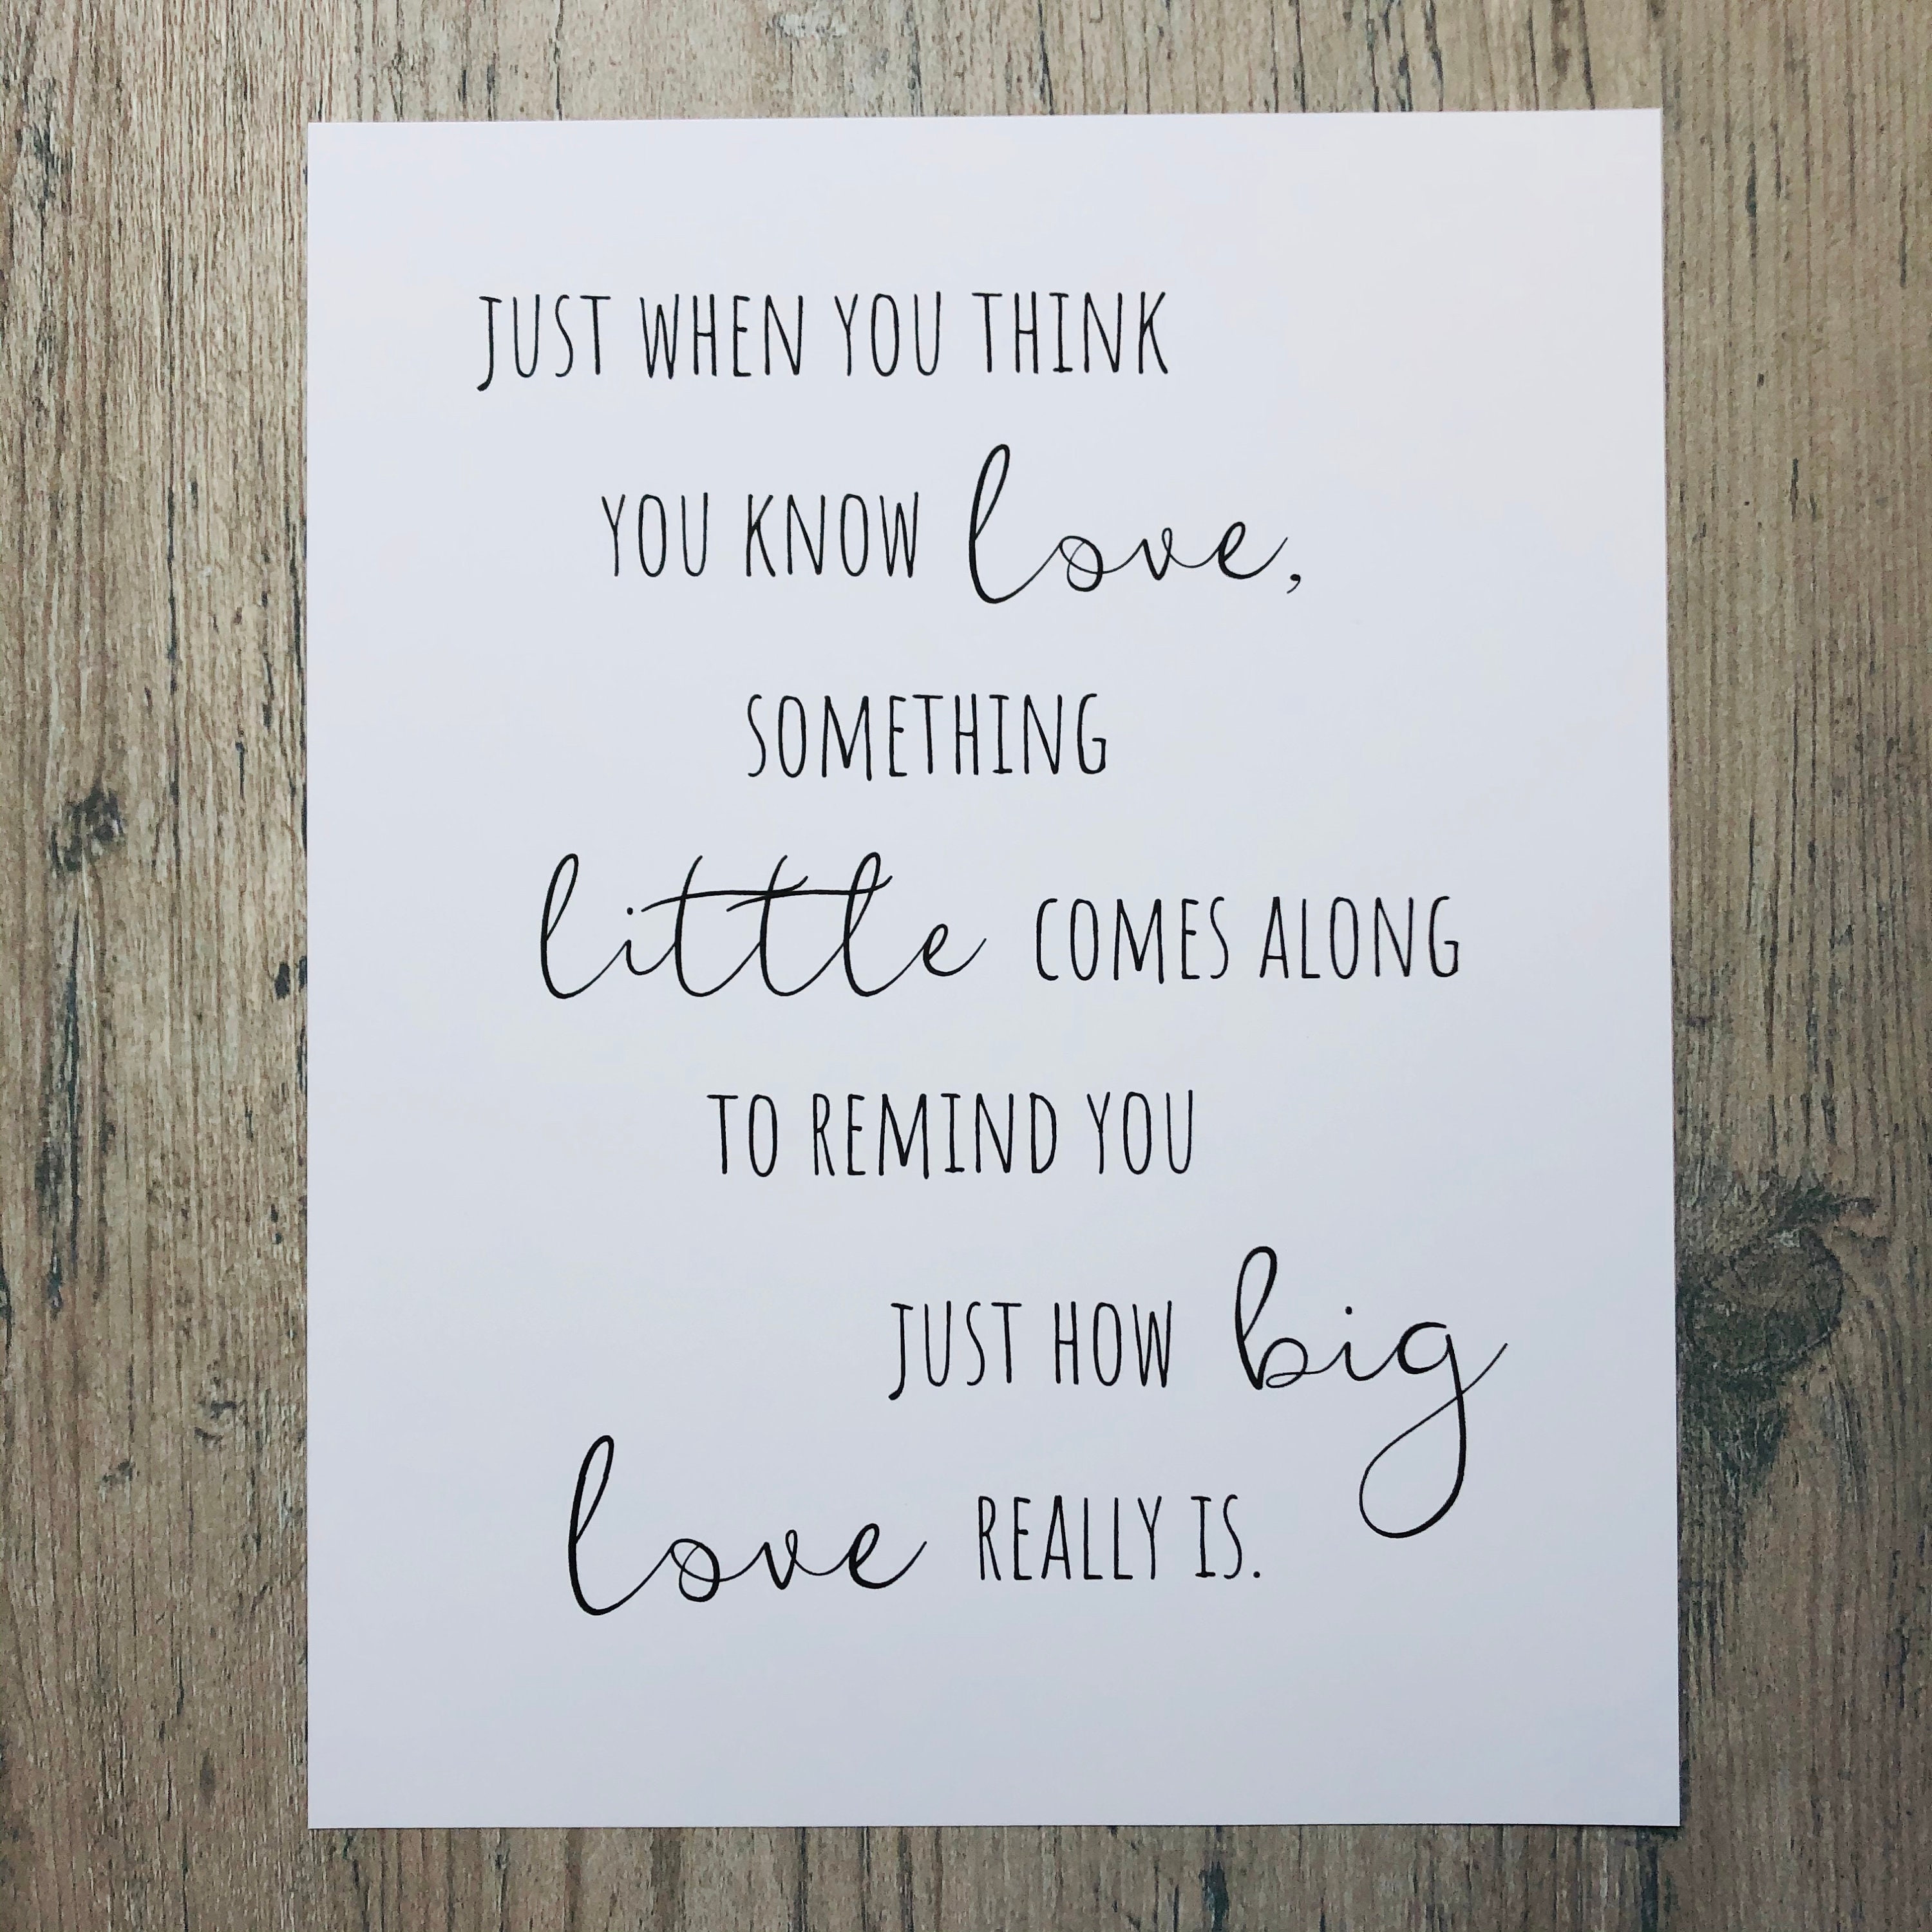 JUST WHEN YOU THINK
YOU KNOW love,
SOMETHING
little COMES ALONG
TO REMIND YOU
JUST HOW big
love REALLY IS.